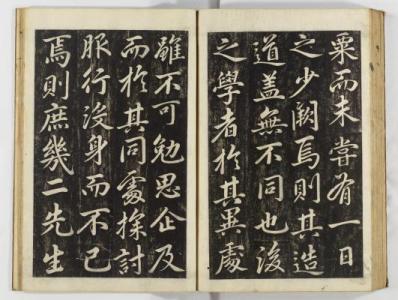 粟而未嘗有一日
之少闕焉則其造
道盖無不同也後
之學者於其異處
雖不可勉思企及
而於其同處探討
服行没身而不已
焉則庶幾二先生